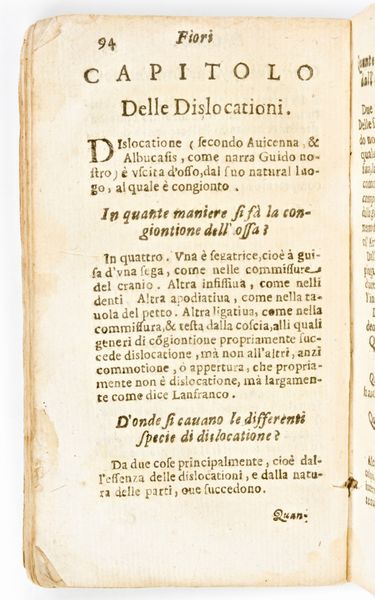 94 Fiori
CAPITOLO
Delle Dislocationi.
DIslocatione (secondo Auicenna, &
Albucasis, come narra Guido no-
stro) è vscita d'osso, dal suo natural luo-
go, al quale è congionto.
In quante maniere si fà la con-
giontione dell'ossa?
In quattro. Vna è segatrice, cioè à gui-
sa d'vna sega, come nelle commissure
del cranio. Altra infissiua, come nelli
denti Altra apodiatiua, come nella ta-
uola del petto. Altra ligatiua, come nella
commissura, & testa dalla coscia, alli quali
generi di cõgiontione propriamente suc-
cede dislocatione, mà non all'altri, anzi
commotione, ò appertura, che propria-
mente non è dislocatione, mà largamen-
te come dice Lanfranco.
D'onde si cauano le differenti
specie di dislocatione?
Da due cose principalmente, cioè dal-
l'essenza delle dislocationi, e dalla natu-
ra delle parti, oue succedono.
Quan-